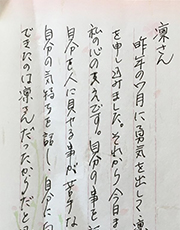 凛さん
昨年の7月に勇気を出して凛
を申し込みました。それから今日ま
私の心の支えです。自分の事を話
自分を人に見せる事が苦手な
自分の気持ちを話し、自分に向
できたのは凛さんだったからだと